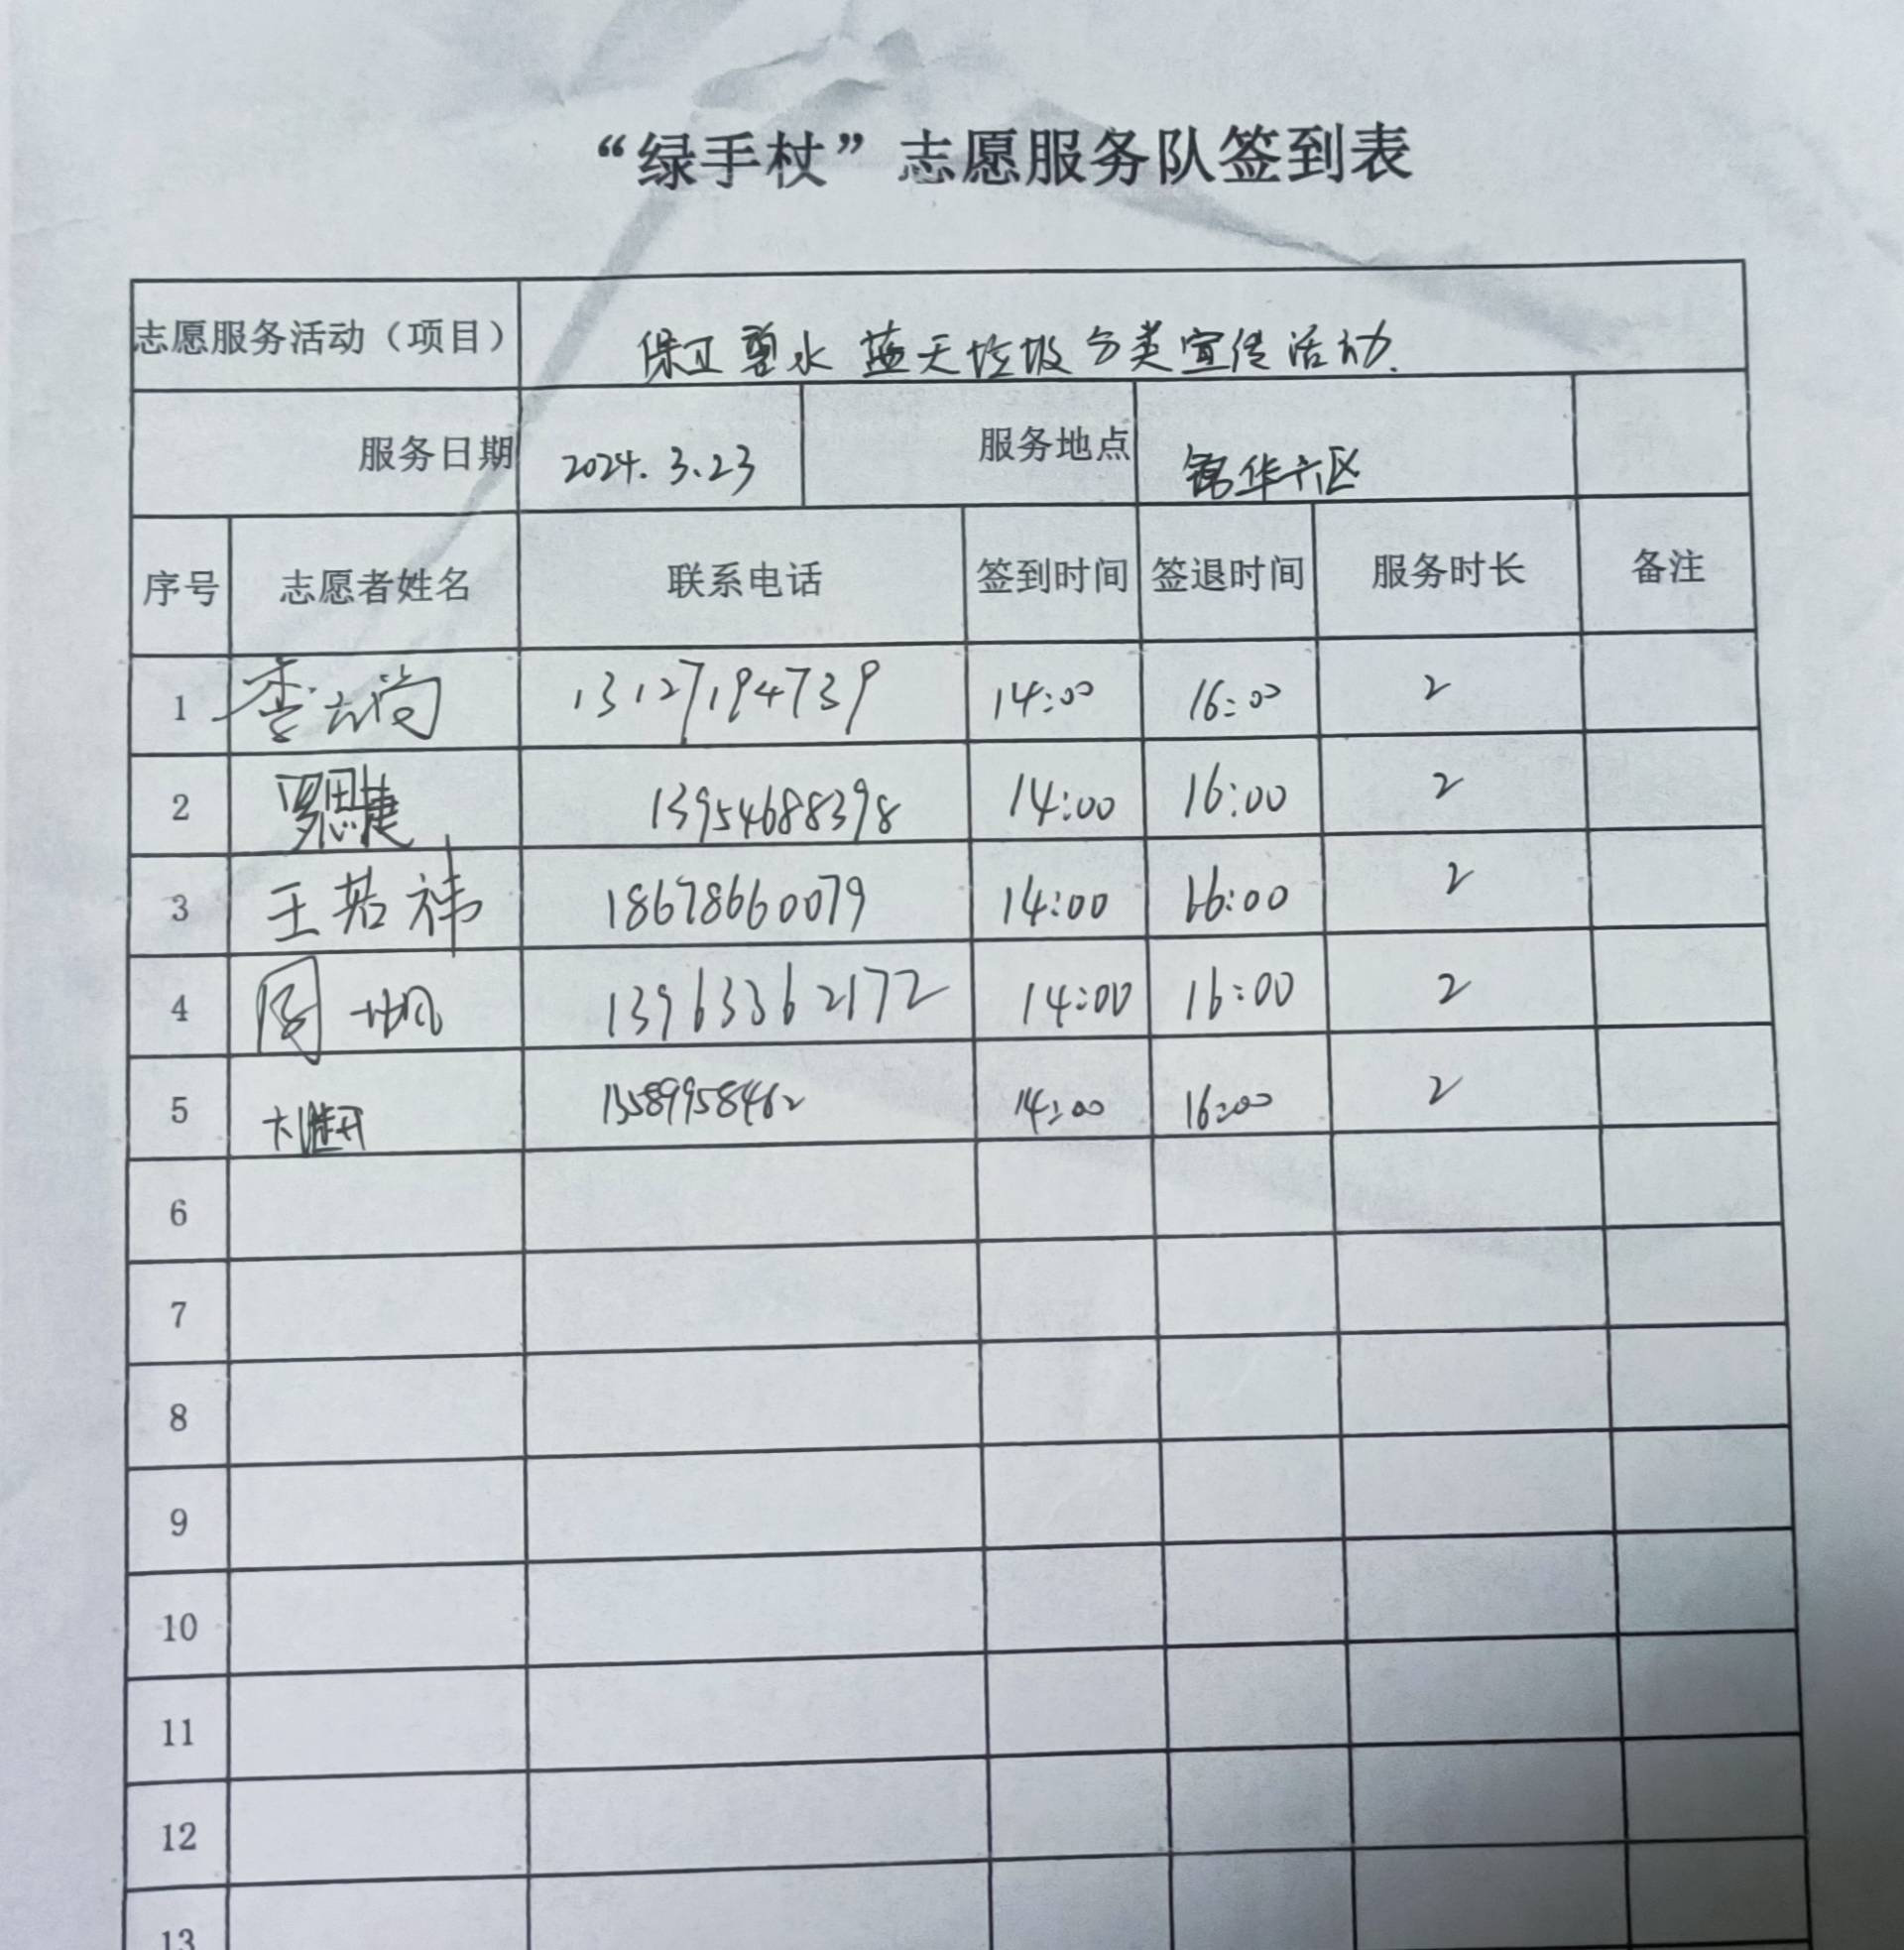 “绿手杖”志愿服务队签到表
志愿服务活动（项目） 保卫碧水 蓝天垃圾分类宣传活动.
服务日期 2024.3.23 服务地点 锦华六区
序号 志愿者姓名 联系电话 签到时间 签退时间 服务时长 备注
1 李尚 13127194739 14:00 16:00 2
2 罗思捷 13954688398 14:00 16:00 2
3 王若祎 18678660079 14:00 16:00 2
4 周 13963362172 14:00 16:00 2
5 13589958462 14:00 16:00 2
6
7
8
9
10
11
12
13